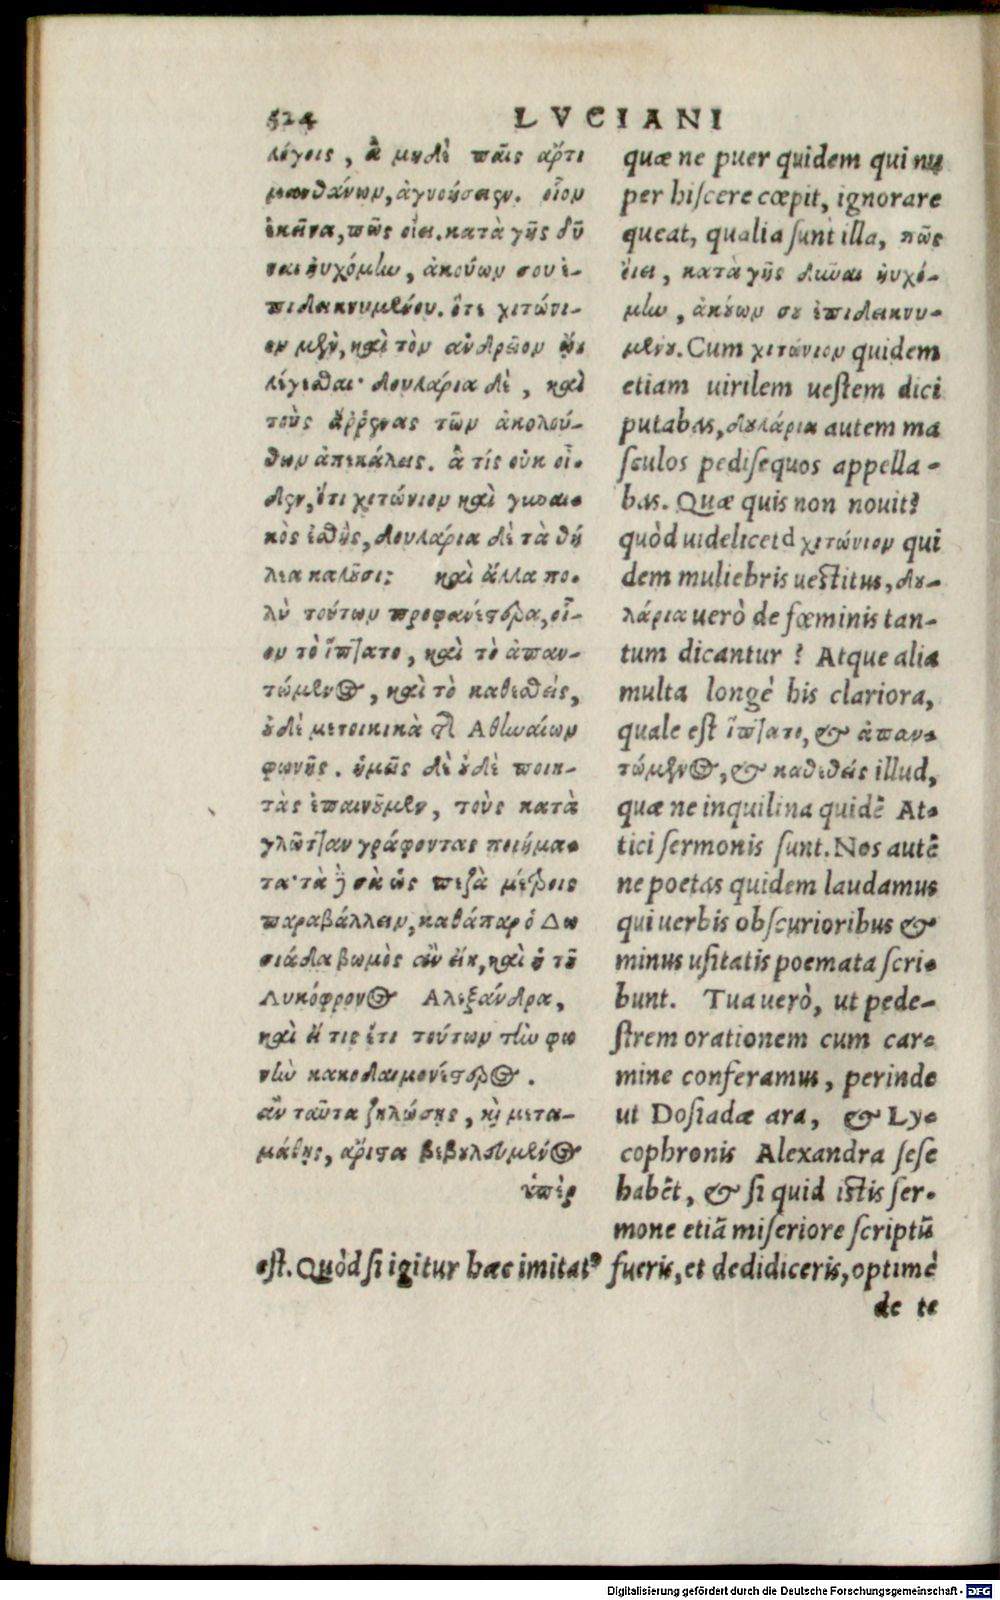 524 LVCIANI
λέγεις, ἃ μηδὲ παῖς ἄρτι
μανθάνων, ἀγνοήσειεν. οἷον
ἐκεῖνα, πῶς οἴει. κατὰ γῆς δῦ
ναι ηὐχόμην, ἀκούων σου ἐ-
πιδεικνυμένου. ὅτε χιτώνι-
ον μὲν, καὶ τὸν ἀνδρεῖον ᾤου
λέγεσθαι· δουλάρια δὲ, καὶ
τοὺς ἄῤῥενας τῶν ἀκολού-
θων ἀπεκάλεις. ἃ τίς οὐκ οἶ-
δεν, ὅτι χιτώνιον καὶ γυναι-
κὸς ἐσθὴς, δουλάρια δὲ τὰ θή
λεα καλοῦσι; καὶ ἄλλα πο-
λὺ τούτων προφανέστερα, οἷ-
ον τὸ ἵπτατο, καὶ τὸ ἀπαν-
τώμενος, καὶ τὸ καθεσθείς,
οὐδὲ μετοικικὰ τῆς Αθηναίων
φωνῆς. ἡμεῖς δὲ οὐδὲ ποιη-
τὰς ἐπαινοῦμεν, τοὺς κατὰ
γλῶτταν γράφοντας ποιήμα-
τα· τὰ δὲ σὰ ὡς πεζὰ μέτροις
παραβάλλειν, καθάπερ ὁ Δω
σιάδα βωμὸς ἂν εἴη, καὶ ἡ τοῦ
Λυκόφρονος Αλεξάνδρα,
καὶ εἴ τις ἔτι τούτων τὴν φω
νὴν κακοδαιμονέστερος.
ἂν ταῦτα ζηλώσῃς, καὶ μετα-
μάθῃς, ἄριστα βεβουλευμένος
ὑπὲρ
quæ ne puer quidem qui nu
per hiscere cœpit, ignorare
queat, qualia sunt illa, πῶς
οἴει, κατὰ γῆς δῦναι ηὐχό-
μην, ἀκούων σου ἐπιδεικνυ-
μένου. Cum χιτώνιον quidem
etiam uirilem uestem dici
putabas, δουλάρια autem ma
sculos pedisequos appella-
bas. Quæ quis non nouit?
quòd uidelicet χιτώνιον qui
dem muliebris uestitus, δου-
λάρια uerò de fœminis tan-
tum dicantur? Atque alia
multa longè his clariora,
quale est ἵπτατο, & ἀπαν-
τώμενος, & καθεσθείς illud,
quæ ne inquilina quidē At-
tici sermonis sunt. Nos autē
ne poetas quidem laudamus
qui uerbis obscurioribus &
minus usitatis poemata scri-
bunt. Tua uerò, ut pede-
strem orationem cum car-
mine conferamus, perinde
ut Dosiadæ ara, & Ly-
cophronis Alexandra sese
habēt, & si quid istis ser-
mone etiā miseriore scriptū
est. Quòd si igitur hæc imitatꝰ fueris, et dedidiceris, optimè
de te
Digitalisierung gefördert durch die Deutsche Forschungsgemeinschaft - DFG